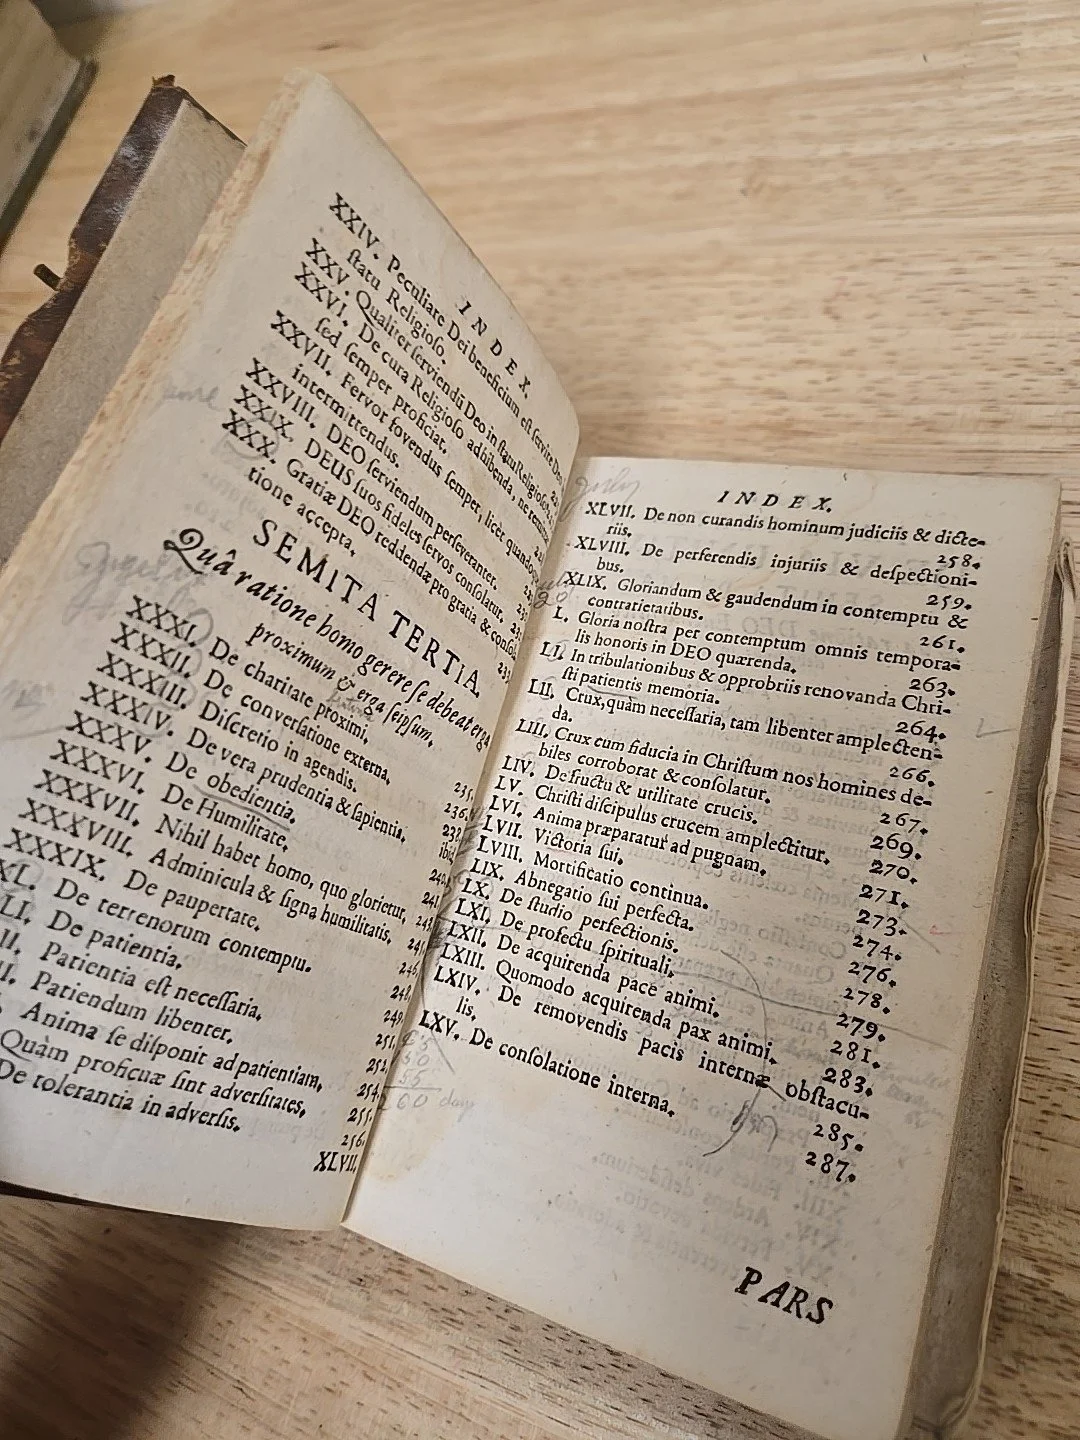 INDEX.
XXIV. Peculiare Dei beneficium est servire Deo
statu Religioso.
XXV. Qualiter serviendū Deo in statu Religioso.
XXVI. De cura Religioso adhibenda, ne remisse
sed semper proficiat.
XXVII. Fervor fovendus semper, licèt quandoque
intermittendus.
XXVIII. DEO serviendum perseveranter.
XXIX. DEUS suos fideles servos consolatur.
XXX. Gratiæ DEO reddendæ pro gratia & consola
tione accepta.
SEMITA TERTIA.
Quâ ratione homo gerere se debeat erga
proximum & erga seipsum.
XXXI. De charitate proximi. 235.
XXXII. De conversatione externa. 236.
XXXIII. Discretio in agendis. 238.
XXXIV. De vera prudentia & sapientia. ibid.
XXXV. De obedientia. 240.
XXXVI. De Humilitate. 241
XXXVII. Nihil habet homo, quo glorietur. 243.
XXXVIII. Adminicula & signa humilitatis.
XXXIX. De paupertate. 246.
XL. De terrenorum contemptu. 248.
LI. De patientia. 249.
II. Patientia est necessaria. 251.
I. Patiendum libenter. 252.
Anima se disponit ad patientiam. 254.
Quàm proficuæ sint adversitates. 255.
De tolerantia in adversis. 256.
XLVII.
INDEX.
XLVII. De non curandis hominum judiciis & dicte-
riis. 258.
XLVIII. De perferendis injuriis & despectioni-
bus. 259.
XLIX. Gloriandum & gaudendum in contemptu &
contrarietatibus. 261.
L. Gloria nostra per contemptum omnis tempora-
lis honoris in DEO quærenda. 263.
LI. In tribulationibus & opprobriis renovanda Chri-
sti patientis memoria. 264.
LII. Crux, quàm necessaria, tam libenter amplecten-
da. 266.
LIII. Crux cum fiducia in Christum nos homines de-
biles corroborat & consolatur. 267.
LIV. De fructu & utilitate crucis. 269.
LV. Christi discipulus crucem amplectitur. 270.
LVI. Anima præparatur ad pugnam. 271.
LVII. Victoria sui. 273.
LVIII. Mortificatio continua. 274.
LIX. Abnegatio sui perfecta. 276.
LX. De studio perfectionis. 278.
LXI. De profectu spirituali. 279.
LXII. De acquirenda pace animi. 281.
LXIII. Quomodo acquirenda pax animi. 283.
LXIV. De removendis pacis internæ obstacu-
lis. 285.
LXV. De consolatione interna. 287.
PARS